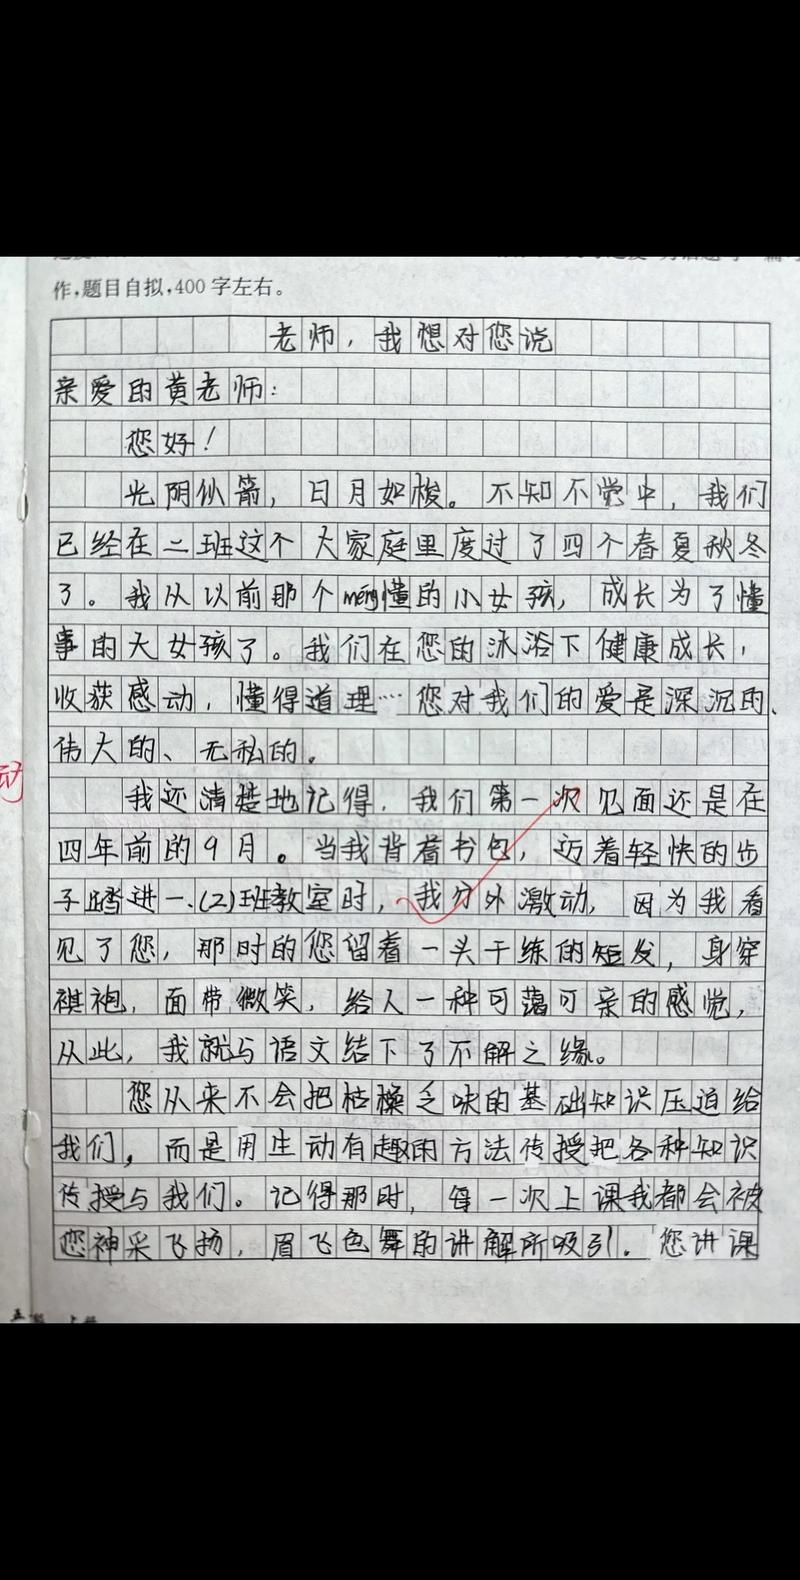 作,题目自拟,400字左右。
老师，我想对您说
亲爱的黄老师：
您好！
光阴似箭，日月如梭。不知不觉中，我们
已经在二班这个大家庭里度过了四个春夏秋冬
了。我从以前那个méng懂的小女孩，成长为了懂
事的大女孩了。我们在您的沐浴下健康成长，
收获感动，懂得道理…您对我们的爱是深沉的、
伟大的、无私的。
我还清楚地记得，我们第一次见面还是在
四年前的9月。当我背着书包，迈着轻快的步
子踏进一.(2)班教室时，我分外激动，因为我看
见了您，那时的您留着一头干练的短发，身穿
褀袍，面带微笑，给人一种可蔼可亲的感觉，
从此，我就与语文结下了不解之缘。
您从来不会把枯橾乏味的基础知识压迫给
我们，而是用生动有趣的方法传授把各种知识
传授与我们。记得那时，每一次上课我都会被
您神采飞扬，眉飞色舞的讲解所吸引.您讲课